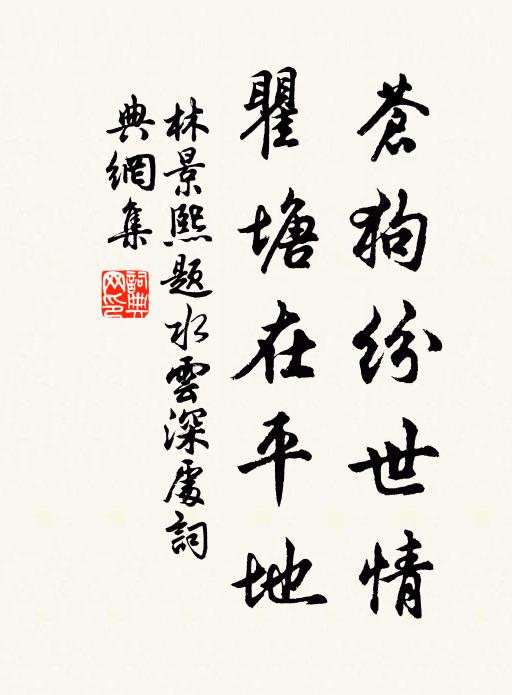 蒼狗紛世情
瞿塘在平地
林景熙題水雲深處詞
典網集
詞典
网印